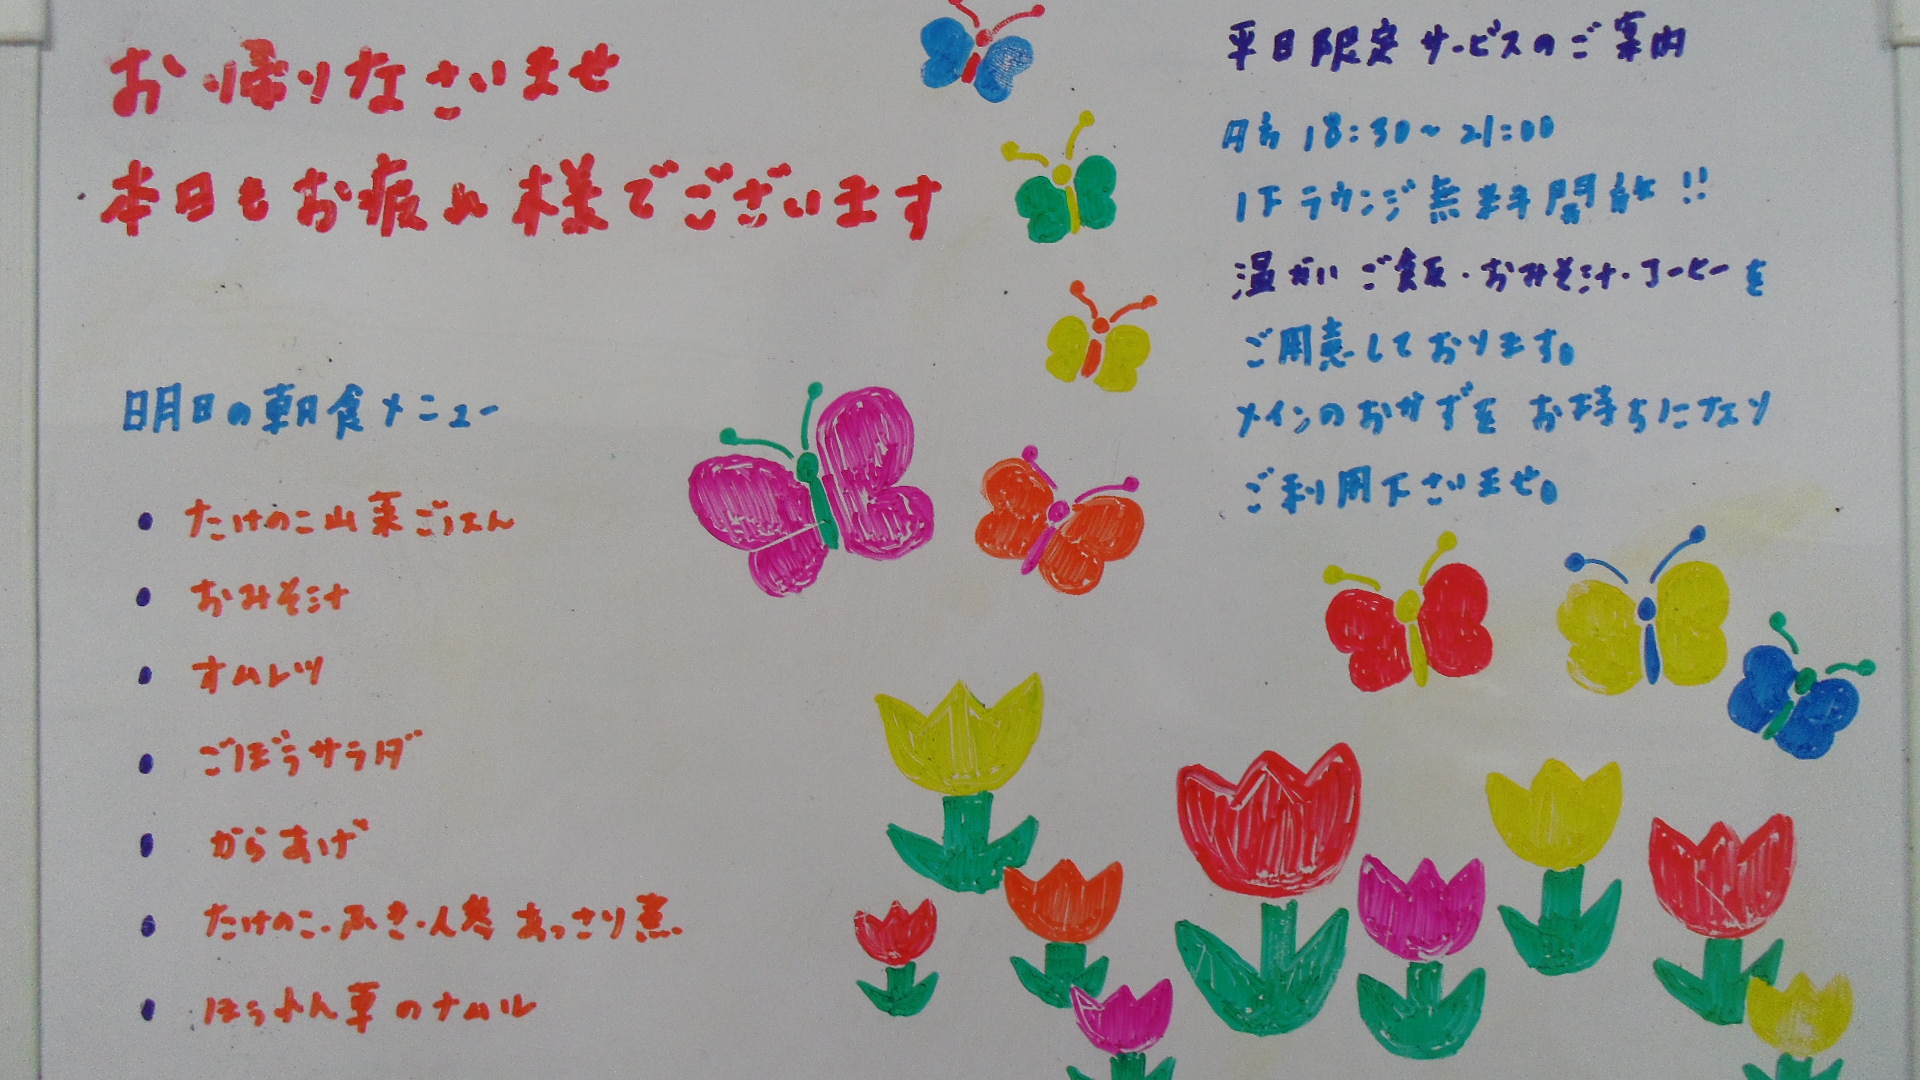 お帰りなさいませ
本日もお疲れ様でございます
明日の朝食メニュー
・たけのこ山菜ごはん
・おみそ汁
・オムレツ
・ごぼうサラダ
・からあげ
・たけのこ・ふき・人参 あっさり煮
・ほうれん草のナムル
平日限定 サービスのご案内
18:30～21:00
1F ラウンジ 無料開放!!
温かい ご飯・おみそ汁・コーヒーを
ご用意しております。
メインのおかずを お持ちになり
ご利用下さいませ。